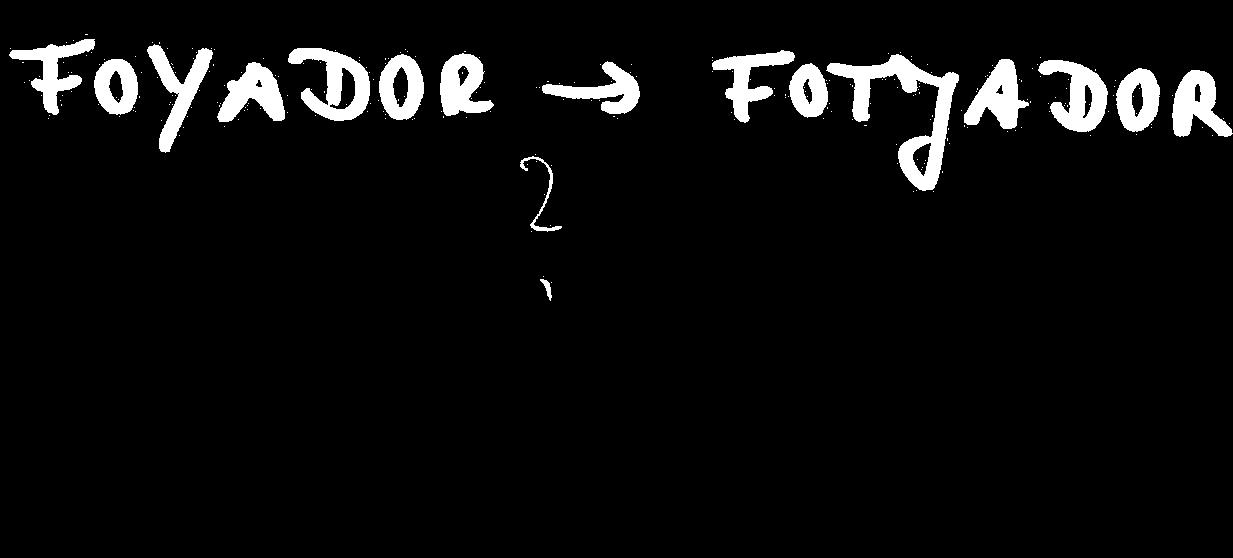 FOYADOR → FOTJADOR
?